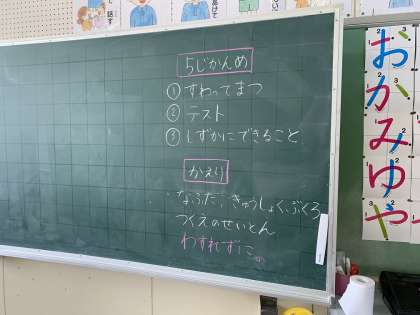 5じかんめ
① すわってまつ
② テスト
③ しずかにできること
かえり
・なふだ、きゅうしょくぶくろ
つくえのせいとん
わすれずに。
おかみゆや